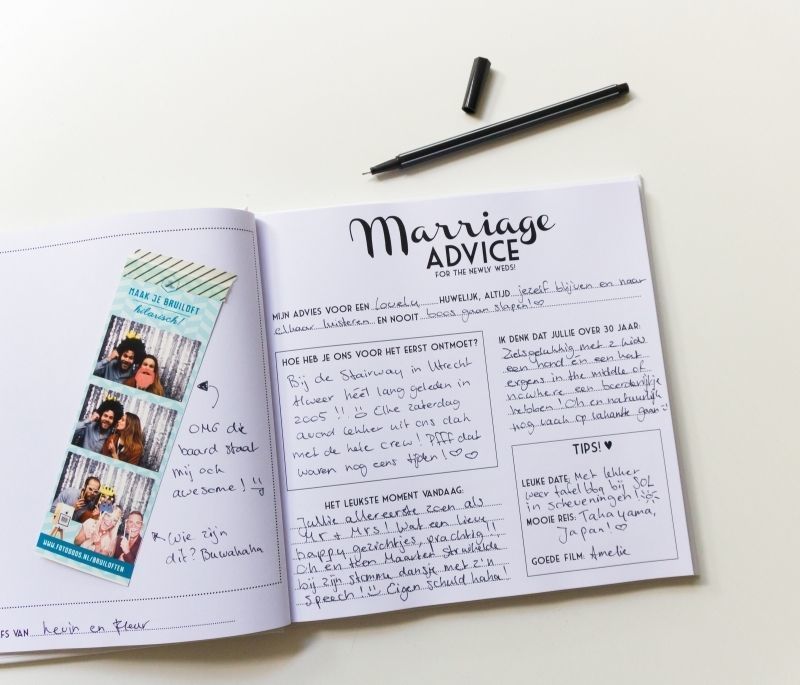 MAAK JE BRUILOFT
hilarisch!
WWW.FOTOROOS.NL/BRUILOFTEN
OMG die
baard staat
mij ook
awesome!
Wie zijn
dit? Buwahaha
FS VAN Kevin en Fleur
Marriage
ADVICE
FOR THE NEWLY WEDS!
MIJN ADVIES VOOR EEN lovely HUWELIJK, ALTIJD jezelf blijven en naar
elkaar luisteren EN NOOIT boos gaan slapen!
HOE HEB JE ONS VOOR HET EERST ONTMOET?
Bij de Stairway in Utrecht
Alweer héél lang geleden in
2005!! Elke zaterdag
avond lekker uit ons dak
met de hele crew! Pfff dat
waren nog eens tijden!
HET LEUKSTE MOMENT VANDAAG:
Jullie allereerste zoen als
Mr + Mrs! Wat een lieve
happy gezichtjes, prachtig!!
Oh en toen Maarten struikelde
bij zijn stomme dansje met z'n
speech! Eigen schuld haha!
IK DENK DAT JULLIE OVER 30 JAAR:
Zielsgelukkig met 2 kids
een hond en een kat
ergens in the middle of
nowhere een boerderijtje
hebben! Oh en natuurlijk
nog vaak op vakantie gaan
TIPS! ♥
LEUKE DATE: Met lekker
weer tafel bbq bij SOL
in scheveningen!
MOOIE REIS: Takayama,
Japan!
GOEDE FILM: Amelie